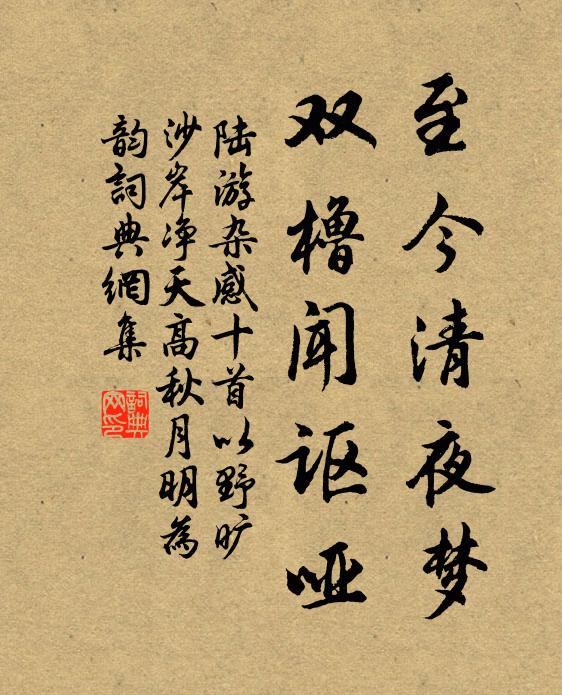 至今清夜梦
双橹闻讴哑
陆游杂感十首以野旷
沙岸净天高秋月明为
韵词典網集
詞典网印